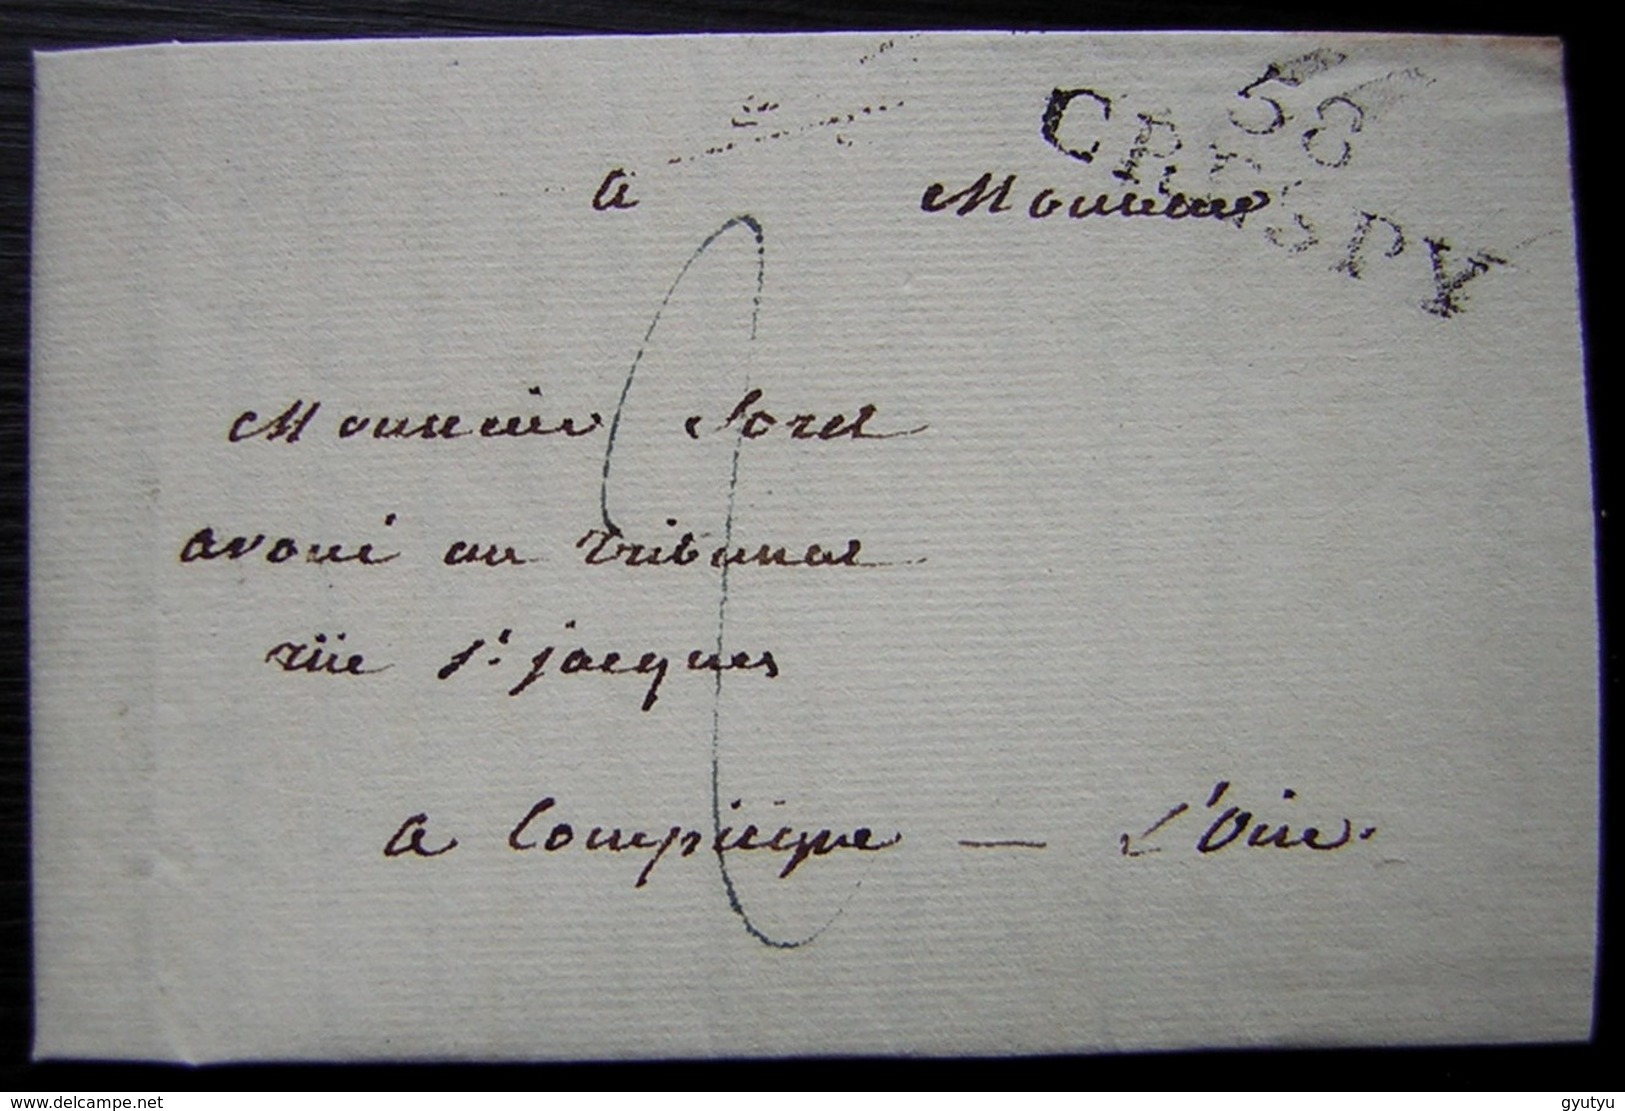 58
CRESPY
a Monsieur
Monsieur Sorel
avoué au tribunal
rüe St. jacques
a Compiegne — L'Oise.
2
www.delcampe.net
gyutyu